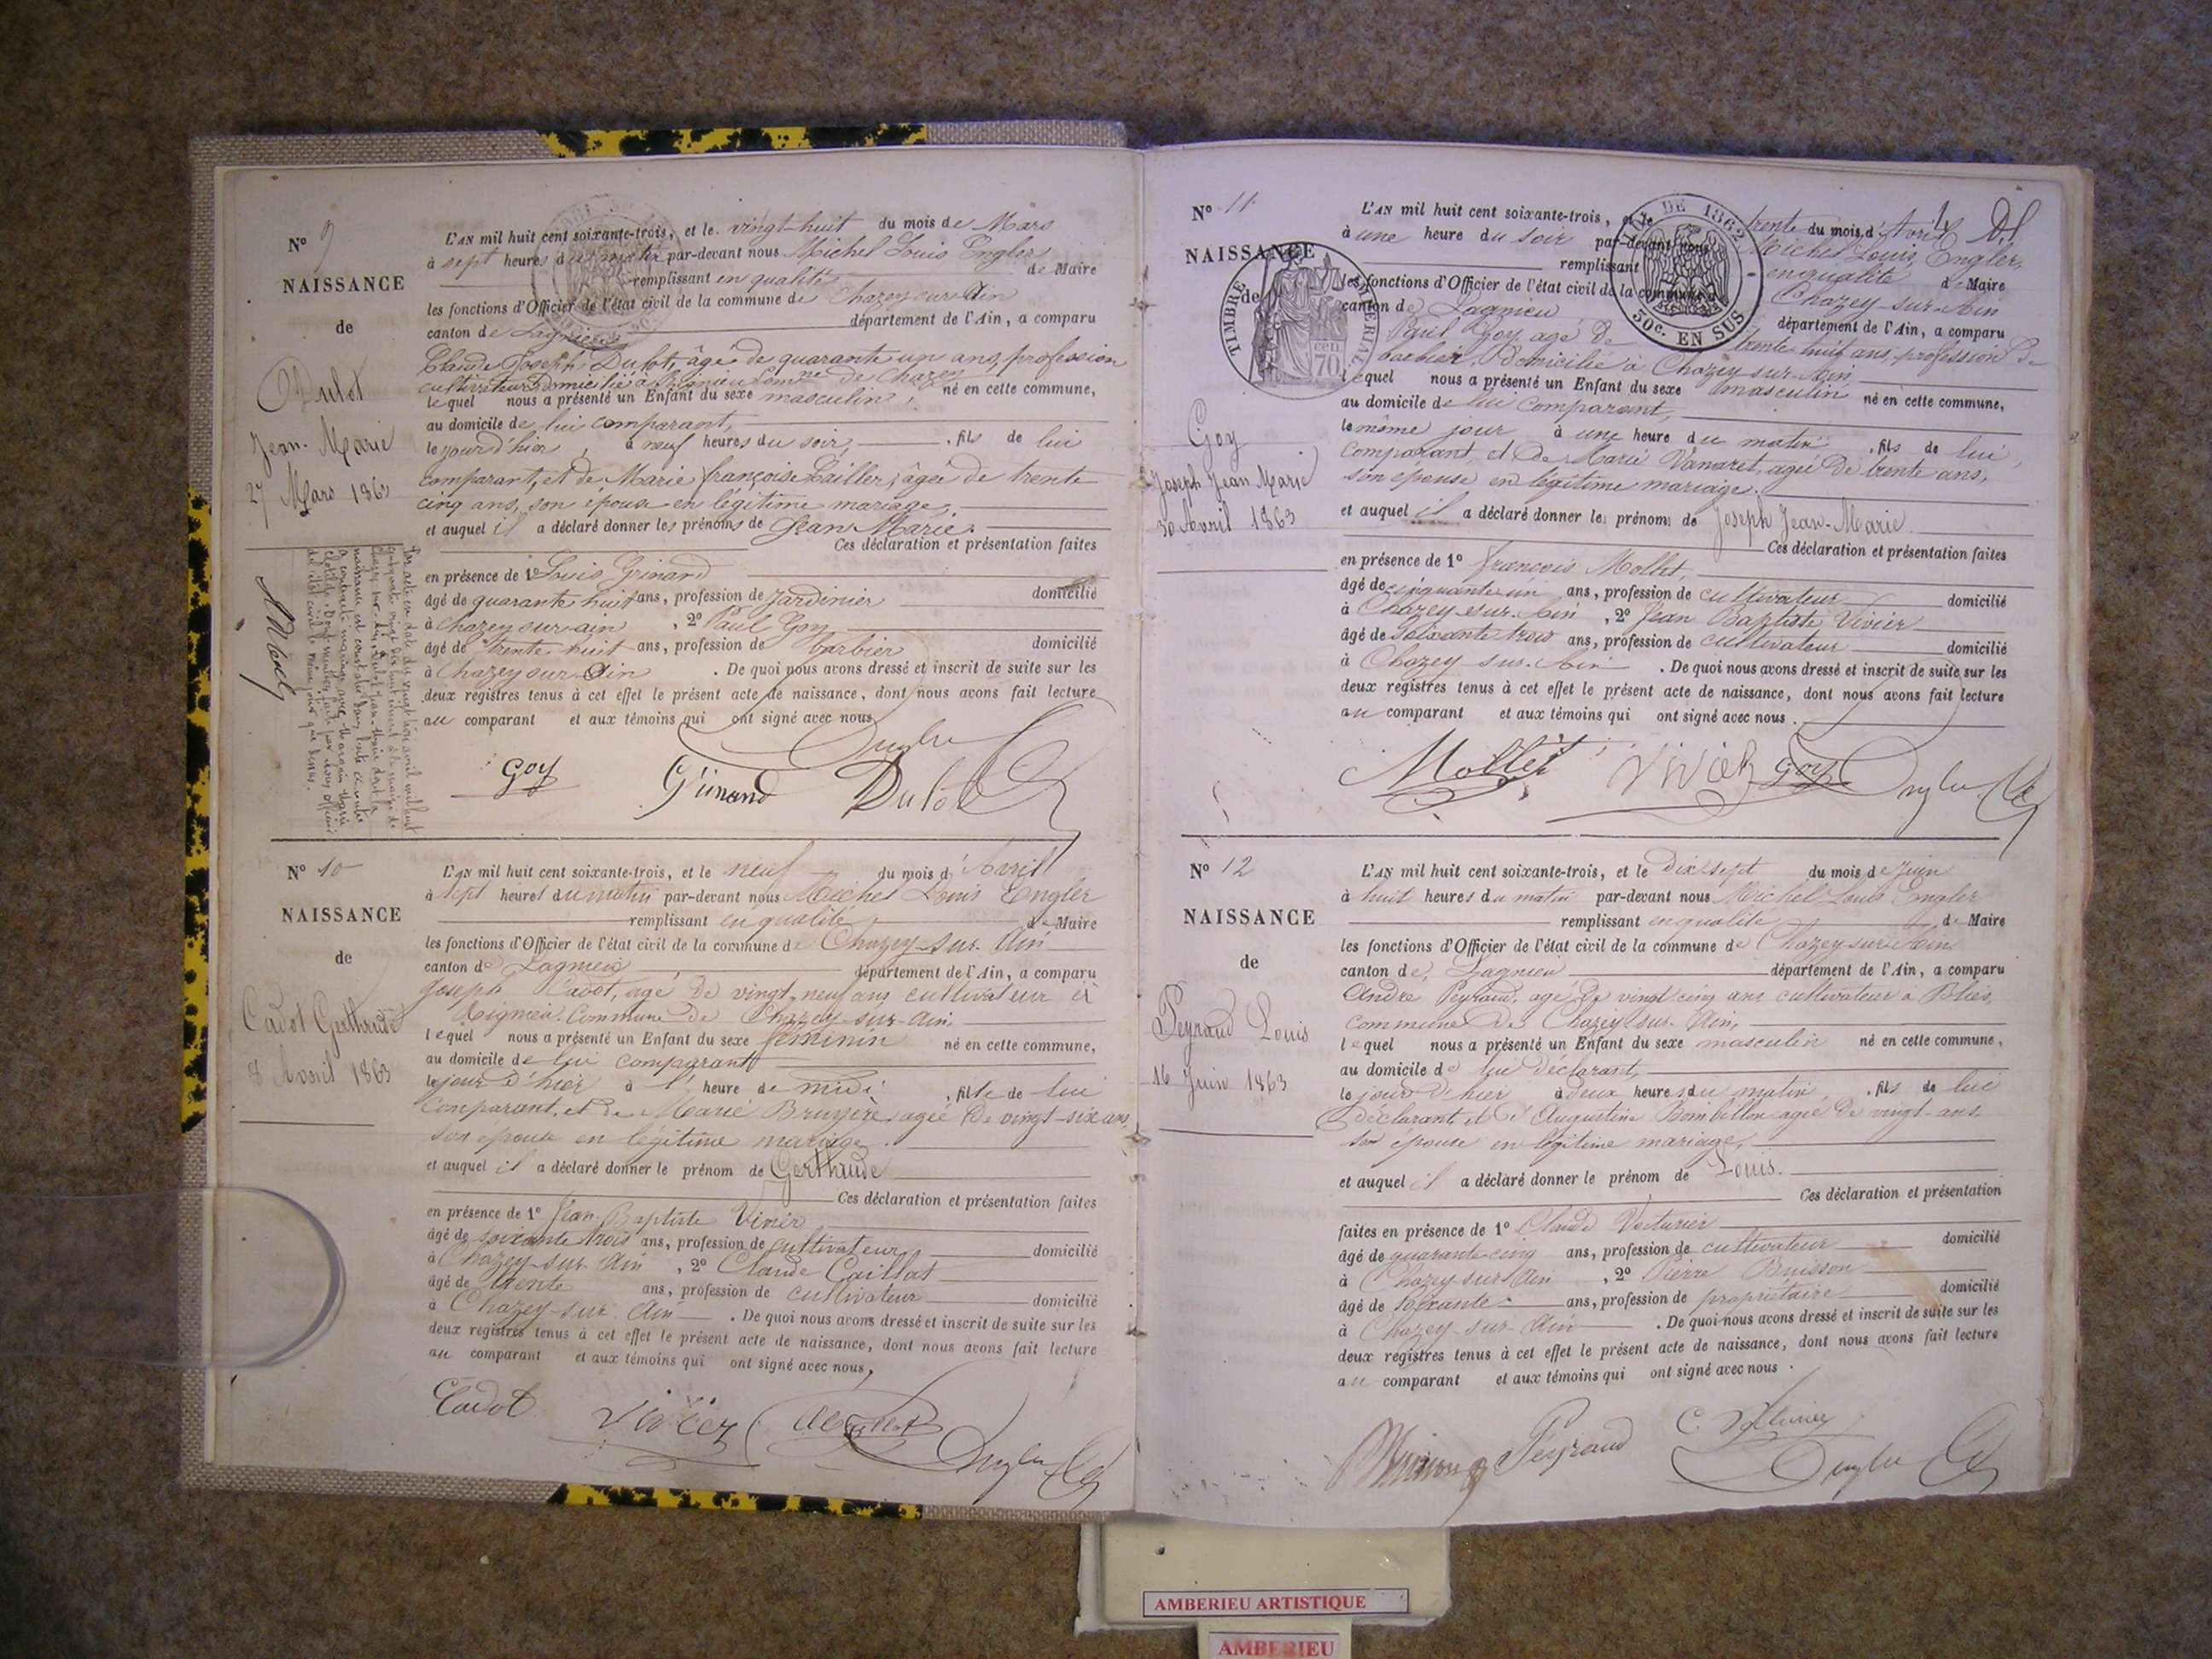 N° 9
NAISSANCE
de
Dulot
Jean-Marie
27 Mars 1863
L'AN mil huit cent soixante-trois, et le vingt-huit du mois de Mars
à sept heures du matin par-devant nous Michel Louis Engler
remplissant en qualité de Maire
les fonctions d'Officier de l'état civil de la commune de Chazey sur Ain
canton de Lagnieu département de l'Ain, a comparu
Claude Joseph Dulot, âgé de quarante un ans, profession
cultivateur domicilié à Rignieu Comne de Chazey
lequel nous a présenté un Enfant du sexe masculin, né en cette commune,
au domicile de lui comparant,
le jour d'hier, à neuf heures du soir, fils de lui
comparant, et de Marie françoise Tailler, âgée de trente
cinq ans, son épouse en légitime mariage,
et auquel il a déclaré donner les prénoms de Jean Marie.
Ces déclaration et présentation faites
en présence de 1° Louis Grinand
âgé de quarante huit ans, profession de jardinier domicilié
à chazey sur ain, 2° Paul Goy
âgé de trente-huit ans, profession de barbier domicilié
à Chazey sur Ain. De quoi nous avons dressé et inscrit de suite sur les
deux registres tenus à cet effet le présent acte de naissance, dont nous avons fait lecture
au comparant et aux témoins qui ont signé avec nous
Engler
Goy Grinand Dulot
N° 10
NAISSANCE
de
Cadot Gerthrude
8 Avril 1863
L'AN mil huit cent soixante-trois, et le neuf du mois d'Avril
à sept heures du matin par-devant nous Michel Louis Engler
remplissant en qualité de Maire
les fonctions d'Officier de l'état civil de la commune de Chazey-sur-Ain
canton de Lagnieu département de l'Ain, a comparu
Joseph Cadot, agé de vingt-neuf ans cultivateur à
Rignieu Commune de Chazey-sur-Ain,
lequel nous a présenté un Enfant du sexe féminin né en cette commune,
au domicile de lui comparant
le jour d'hier à l'heure de midi, fille de lui
comparant, et de Marie Bruyère, agée de vingt-six ans,
son épouse en légitime mariage.
et auquel il a déclaré donner le prénom de Gerthrude
Ces déclaration et présentation faites
en présence de 1° Jean-Baptiste Vivier
âgé de soixante trois ans, profession de cultivateur domicilié
à Chazey-sur-Ain, 2° Claude Caillat
âgé de trente ans, profession de cultivateur domicilié
à Chazey-sur-Ain. De quoi nous avons dressé et inscrit de suite sur les
deux registres tenus à cet effet le présent acte de naissance, dont nous avons fait lecture
au comparant et aux témoins qui ont signé avec nous,
Cadot Vivier Engler
N° 11
NAISSANCE
de
TIMBRE IMPÉRIAL
70
Goy
Joseph Jean Marie
30 Avril 1863
2/10 DE 1862
50c. EN SUS
L'AN mil huit cent soixante-trois, et le trente du mois d'Avril
à une heure du soir par-devant nous Michel Louis Engler,
remplissant en qualité de Maire
les fonctions d'Officier de l'état civil de la commune de Chazey-sur-Ain
canton de Lagnieu département de l'Ain, a comparu
Paul Goy, agé de trente huit ans, profession de
barbier, Domicilié à Chazey-sur-Ain,
lequel nous a présenté un Enfant du sexe masculin né en cette commune,
au domicile de lui comparant,
le même jour à une heure du matin, fils de lui
comparant, et de Marie Vanaret, agée de trente ans,
son épouse en légitime mariage.
et auquel il a déclaré donner les prénoms de Joseph Jean-Marie
Ces déclaration et présentation faites
en présence de 1° François Mollet,
âgé de cinquante un ans, profession de cultivateur domicilié
à Chazey-sur-Ain, 2° Jean Baptiste Vivier
âgé de soixante trois ans, profession de cultivateur domicilié
à Chazey-sur-Ain. De quoi nous avons dressé et inscrit de suite sur les
deux registres tenus à cet effet le présent acte de naissance, dont nous avons fait lecture
au comparant et aux témoins qui ont signé avec nous.
Mollet Vivier Goy Engler
N° 12
NAISSANCE
de
Peyraud Louis
16 Juin 1863
L'AN mil huit cent soixante-trois, et le dix sept du mois de Juin
à huit heures du matin par-devant nous Michel Louis Engler
remplissant en qualité de Maire
les fonctions d'Officier de l'état civil de la commune de Chazey sur Ain
canton de Lagnieu département de l'Ain, a comparu
André Peyraud, agé de vingt cinq ans cultivateur à Bliès,
commune de Chazey-sur-Ain,
lequel nous a présenté un Enfant du sexe masculin né en cette commune,
au domicile de lui déclarant,
le jour d'hier à deux heures du matin, fils de lui
déclarant, et d'Augustine Bombillon agée de vingt-ans
son épouse en légitime mariage,
et auquel il a déclaré donner le prénom de Louis.
Ces déclaration et présentation
faites en présence de 1° Claude Voiturier
âgé de quarante cinq ans, profession de cultivateur domicilié
à Chazey-sur-Ain, 2° Pierre Buisson
âgé de soixante ans, profession de propriétaire domicilié
à Chazey-sur-Ain. De quoi nous avons dressé et inscrit de suite sur les
deux registres tenus à cet effet le présent acte de naissance, dont nous avons fait lecture
au comparant et aux témoins qui ont signé avec nous.
Peyraud Engler
AMBERIEU ARTISTIQUE
AMBERIEU